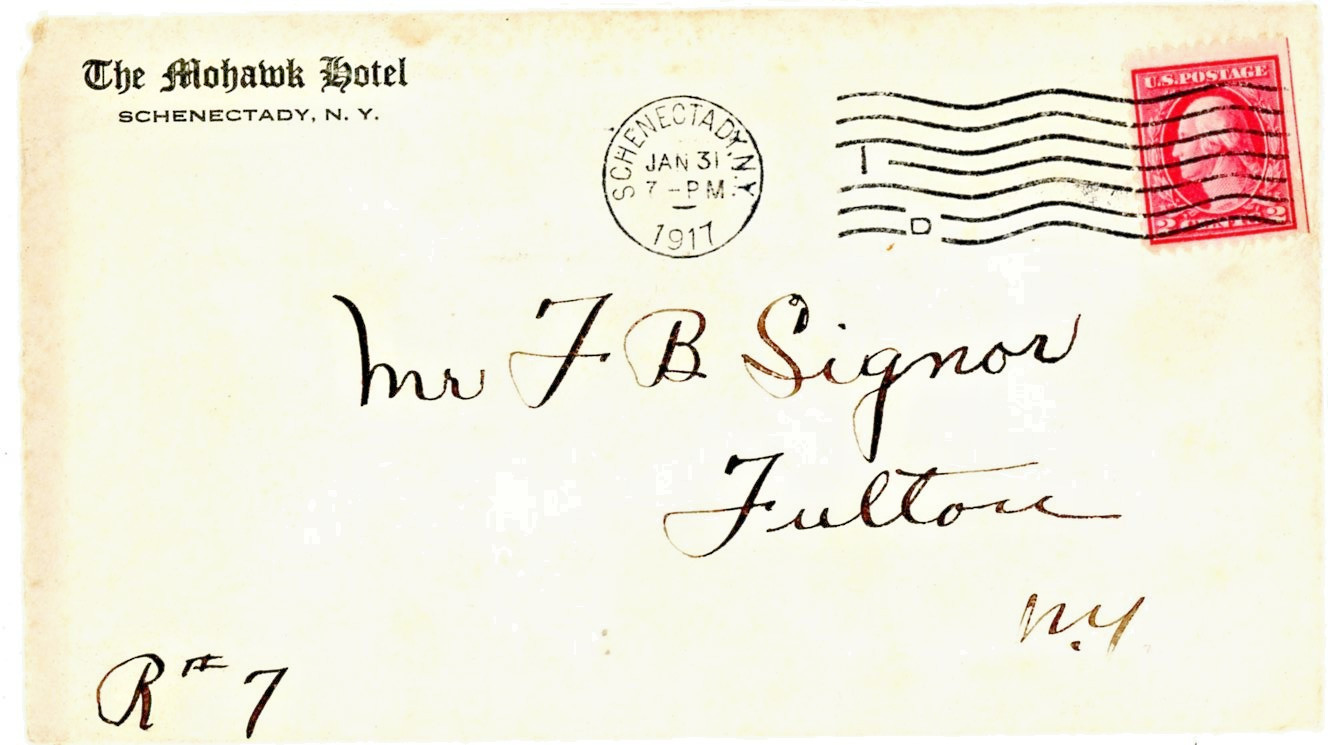 The Mohawk Hotel
SCHENECTADY, N. Y.
SCHENECTADY, N.Y.
JAN 31
7 - PM
1917
1
D
U.S. POSTAGE
2 CENTS 2
Mr F B Signor
Fulton
N.Y
R # 7